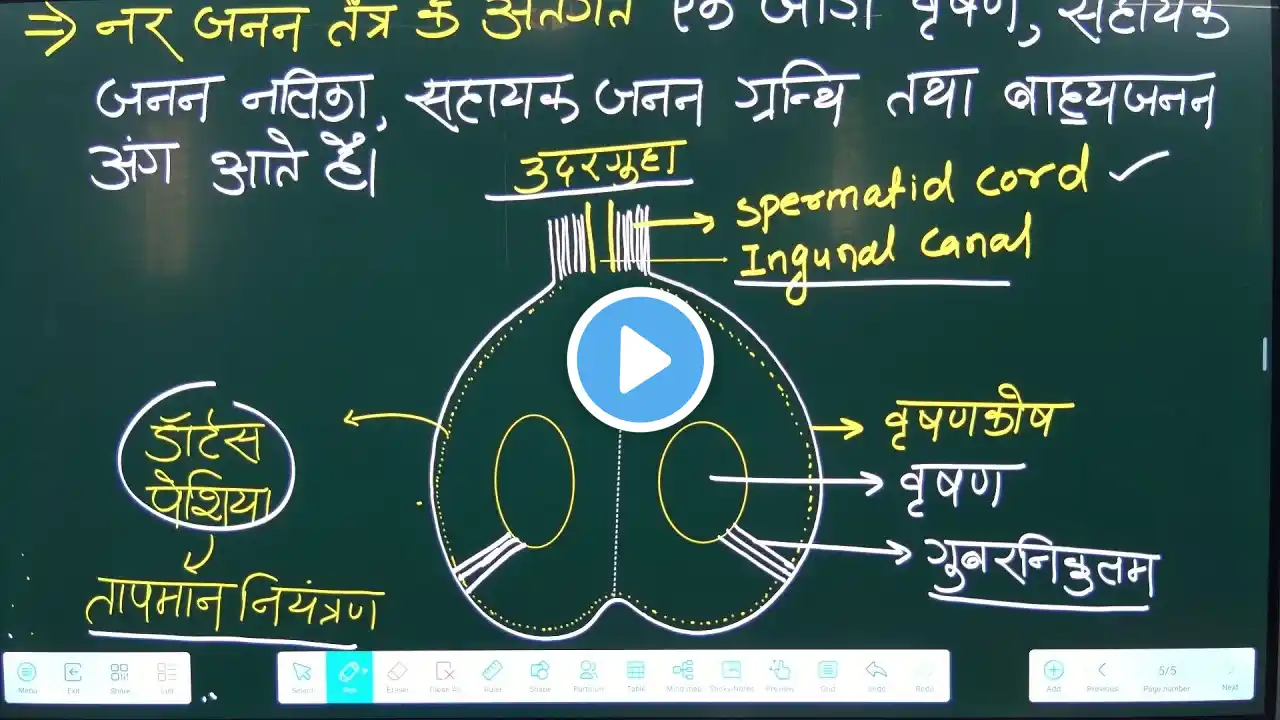 ⇒ नर जनन तंत्र के अंतर्गत एक जोड़ी वृषण, सहायक
जनन नलिका, सहायक जनन ग्रन्थि तथा बाह्यजनन
अंग आते हैं।
उदरगुहा
spermatid cord ✓
Ingunal canal
डॉर्टस
पेशिया
तापमान नियंत्रण
वृषणकोष
वृषण
गुबरनिकुलम
Menu Exit Share Edit
Select Pen Eraser Clean All Ruler Shape Table Mind map Sticky Notes Preview Grid Undo Redo
Add Previous 5/5 Page number Next